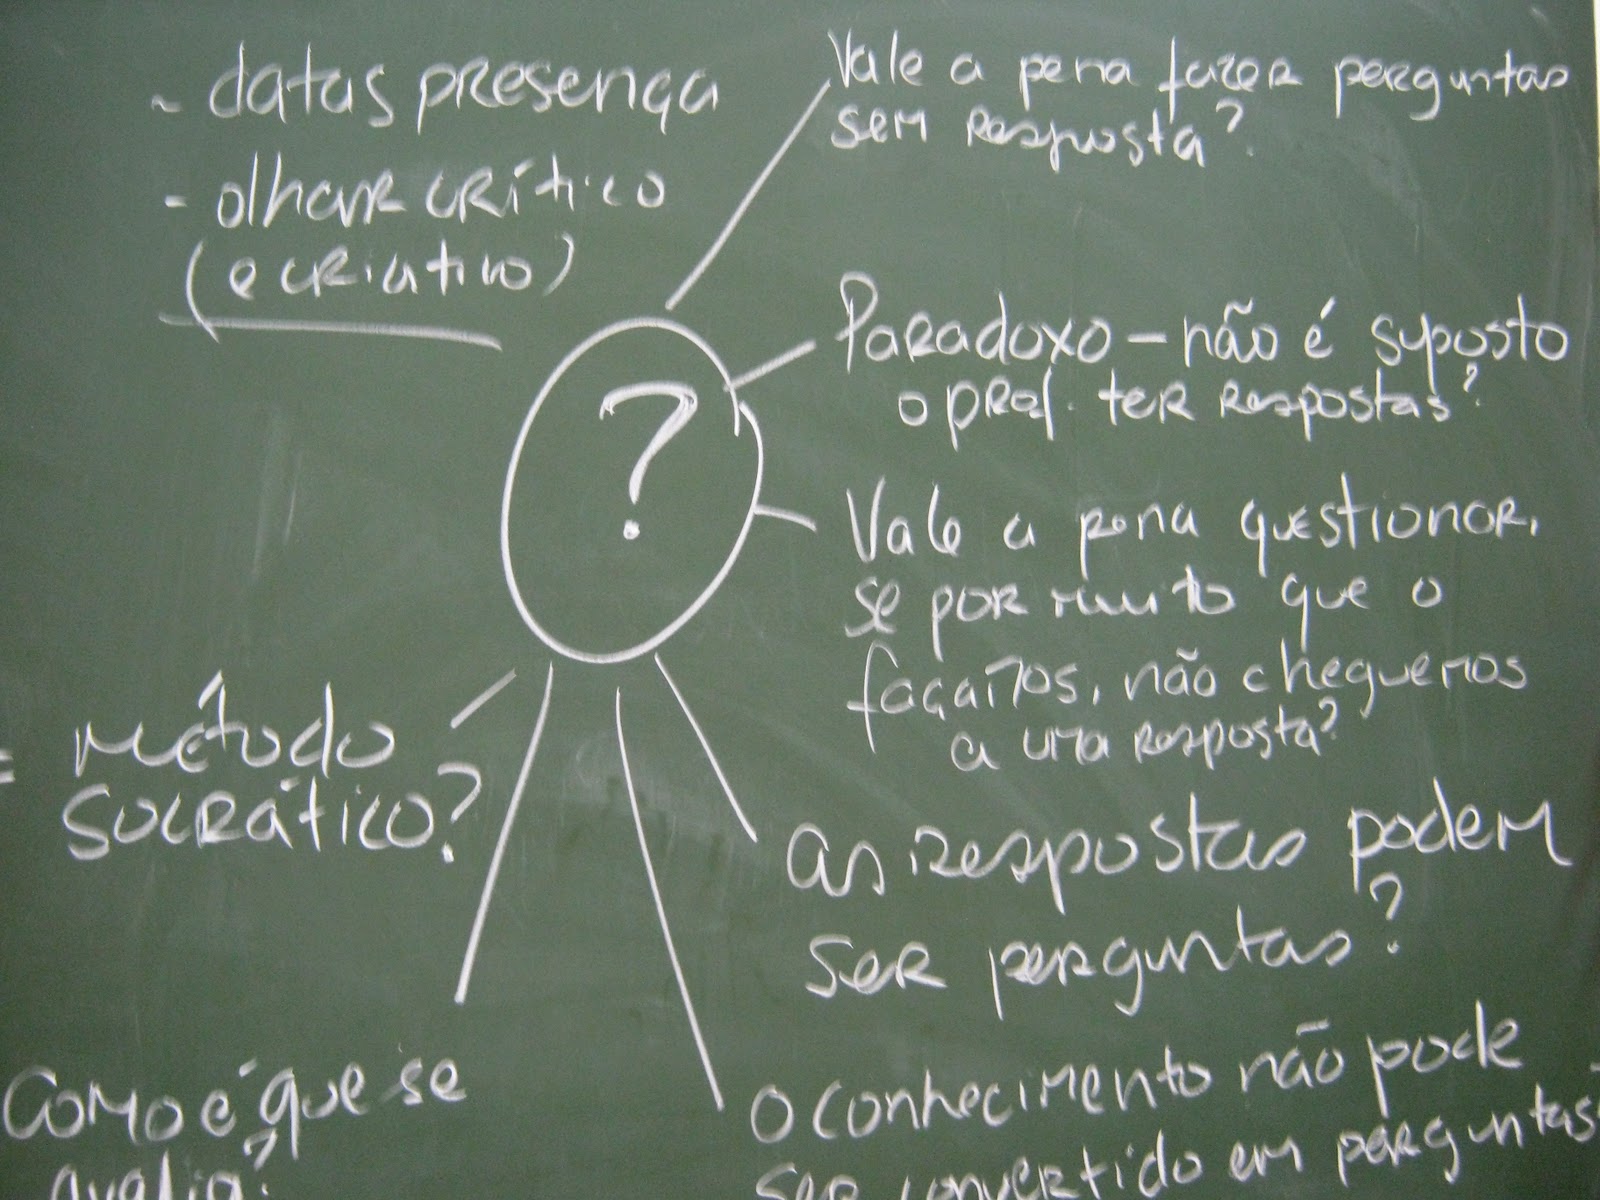 - datas presença
- olhar crítico
(e criativo)
Vale a pena fazer perguntas
sem resposta?
?
Paradoxo - não é suposto
o prof. ter respostas?
Vale a pena questionar,
se por muito que o
façamos, não cheguemos
a uma resposta?
= método
socrático?
as respostas podem
ser perguntas?
Como é que se
avalia?
O conhecimento não pode
ser convertido em perguntas